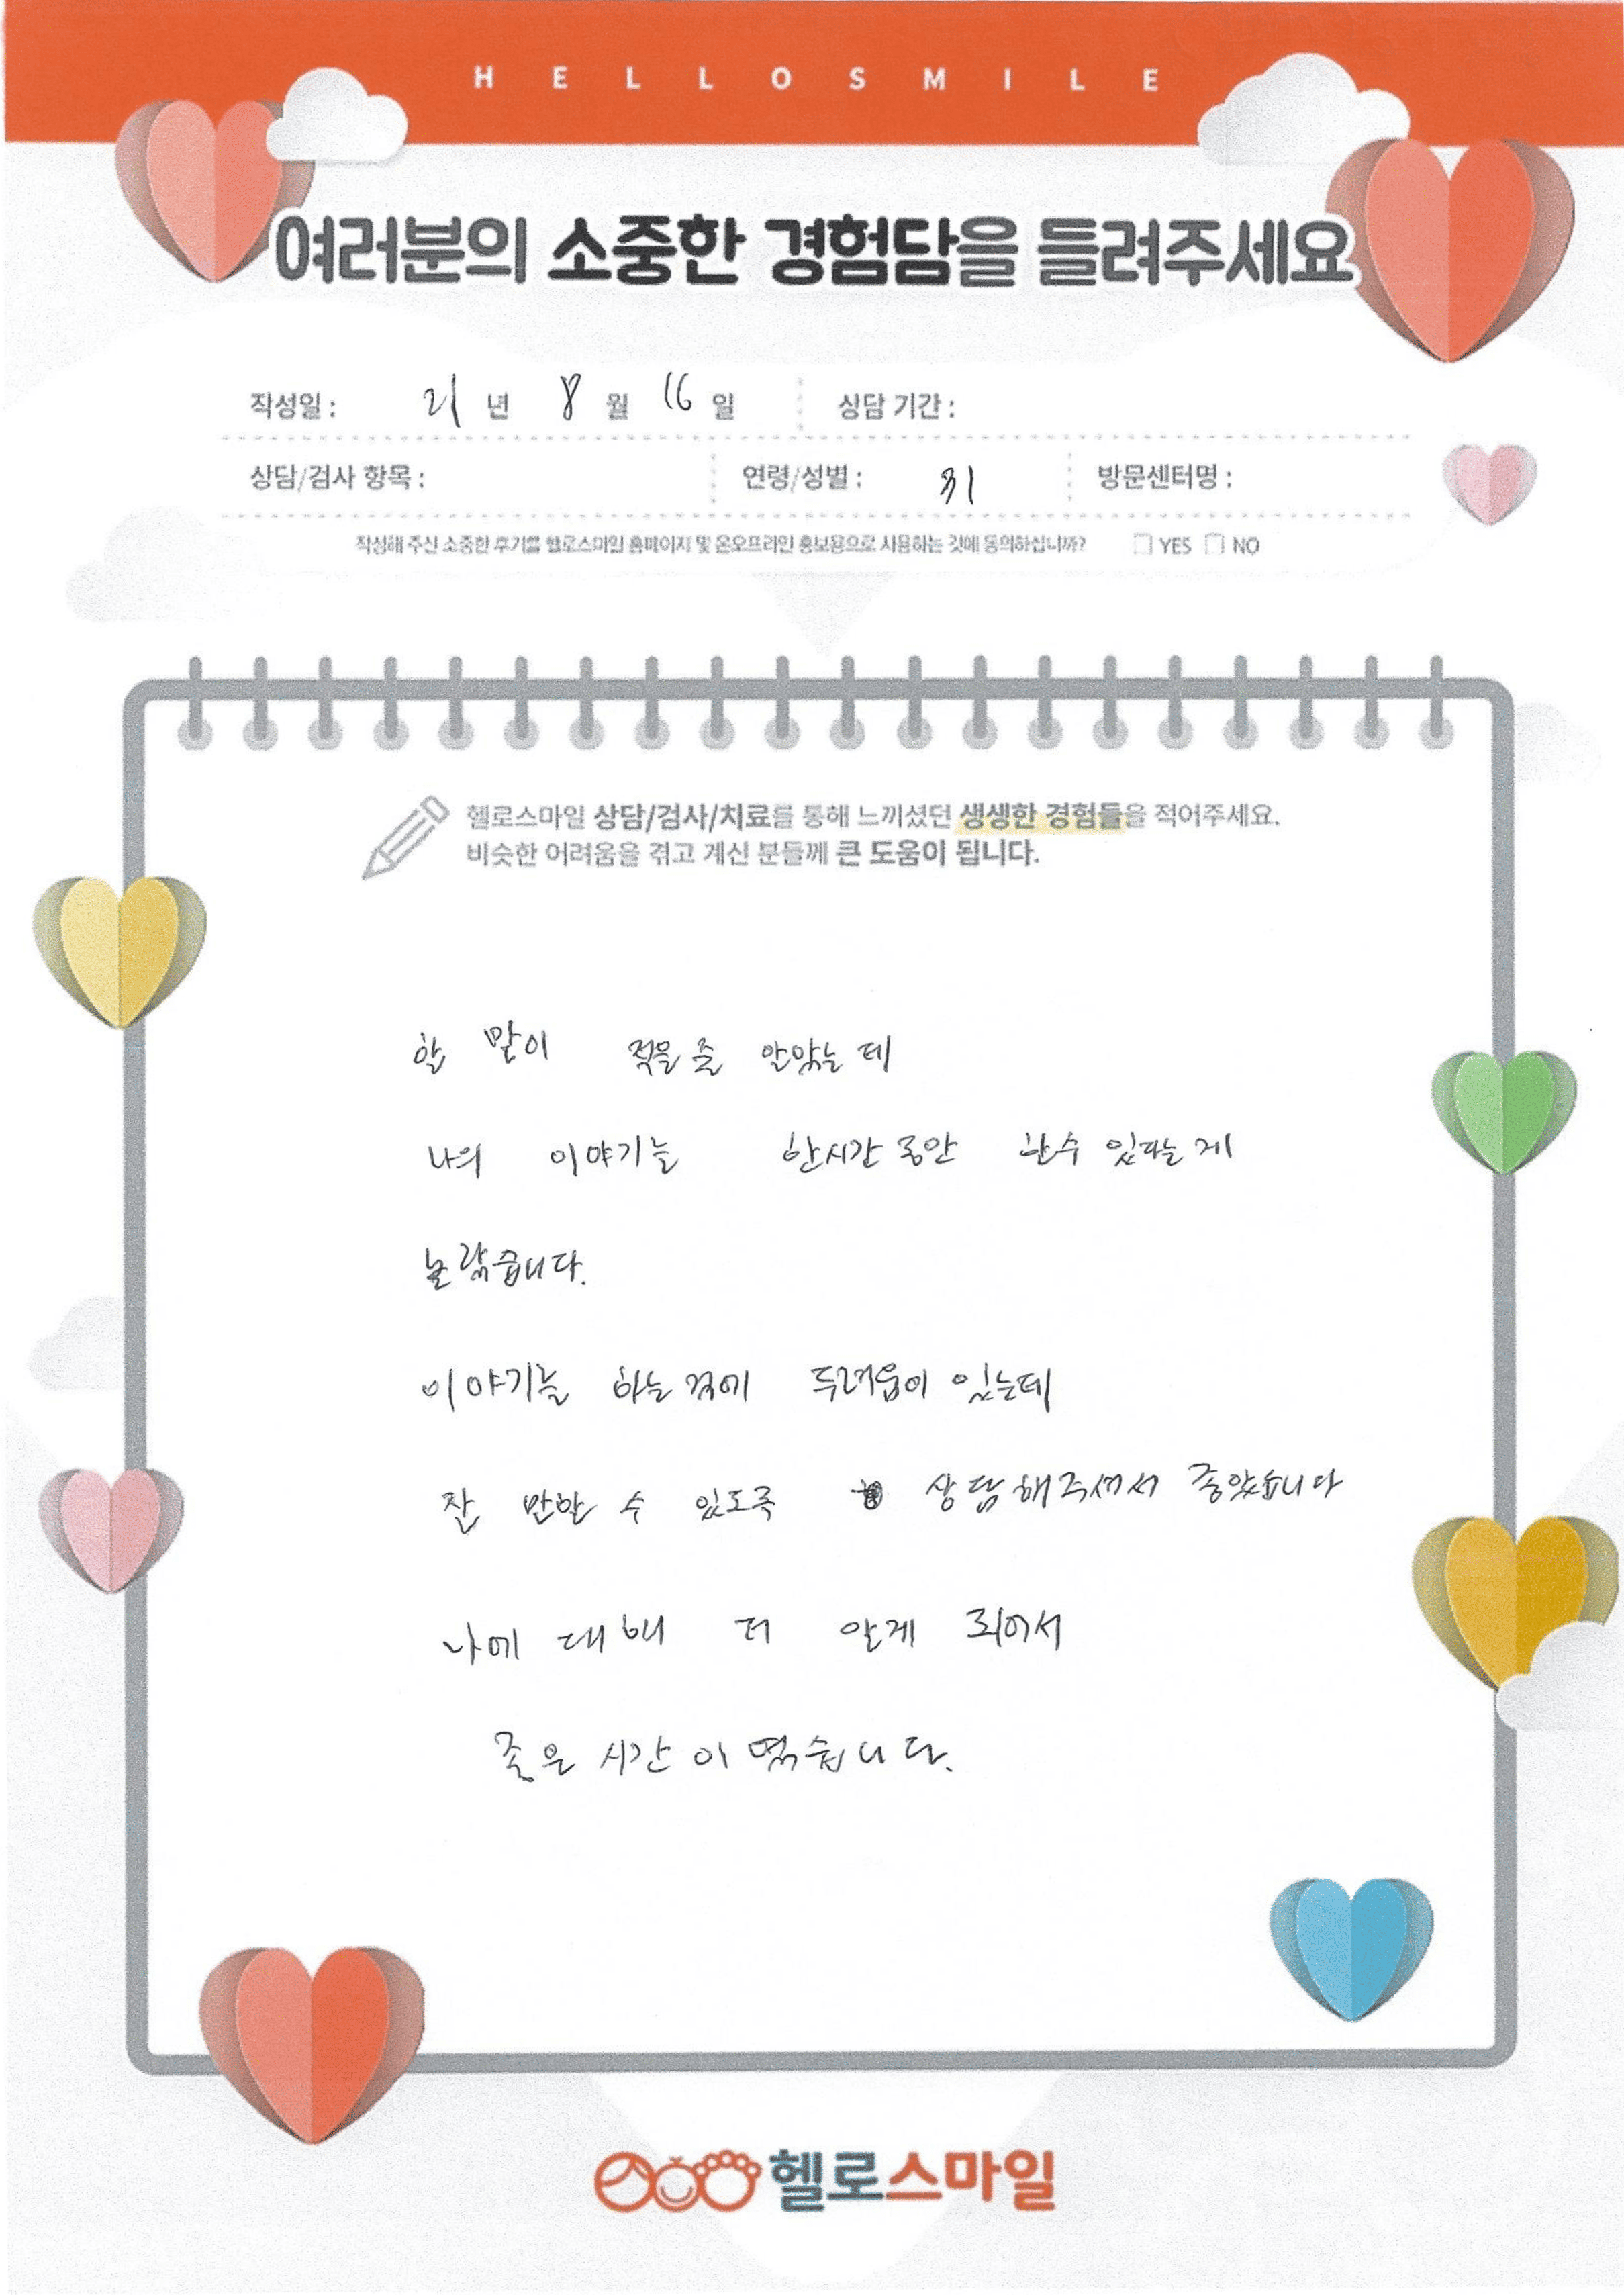 HELLOSMILE
여러분의 소중한 경험담을 들려주세요
작성일 : 21 년 8 월 16 일 상담 기간 :
상담/검사 항목 : 연령/성별 : 31 방문센터명 :
작성해 주신 소중한 후기를 헬로스마일 홈페이지 및 온오프라인 홍보용으로 사용하는 것에 동의하십니까? YES NO
헬로스마일 상담/검사/치료를 통해 느끼셨던 생생한 경험들을 적어주세요.
비슷한 어려움을 겪고 계신 분들께 큰 도움이 됩니다.
할 말이 적을 줄 알았는데
나의 이야기를 한시간 동안 할 수 있다는 게
놀랐습니다.
이야기를 하는 것에 두려움이 있는데
잘 말할 수 있도록 상담해주셔서 좋았습니다
나에 대해 더 알게 되어서
좋은 시간이였습니다.
헬로스마일